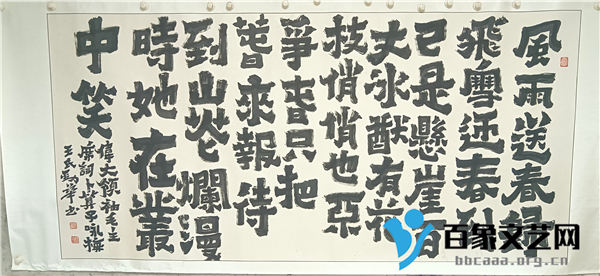 風雨送春歸
飛雪迎春到
已是懸崖百
丈冰猷有花
枝俏俏也不
爭春只把
春來報待
到山花爛漫
時她在叢
中笑
偉大領袖毛主
席詞卜算子詠梅
王氏華书
百象文艺网
bbcaaa.org.cn